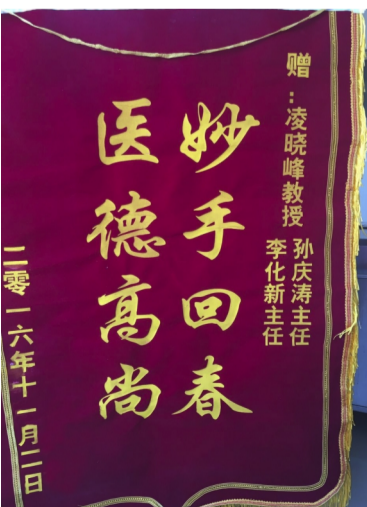 赠：凌晓峰教授
孙庆涛主任
李化新主任
妙手回春
医德高尚
二零一六年十一月二日